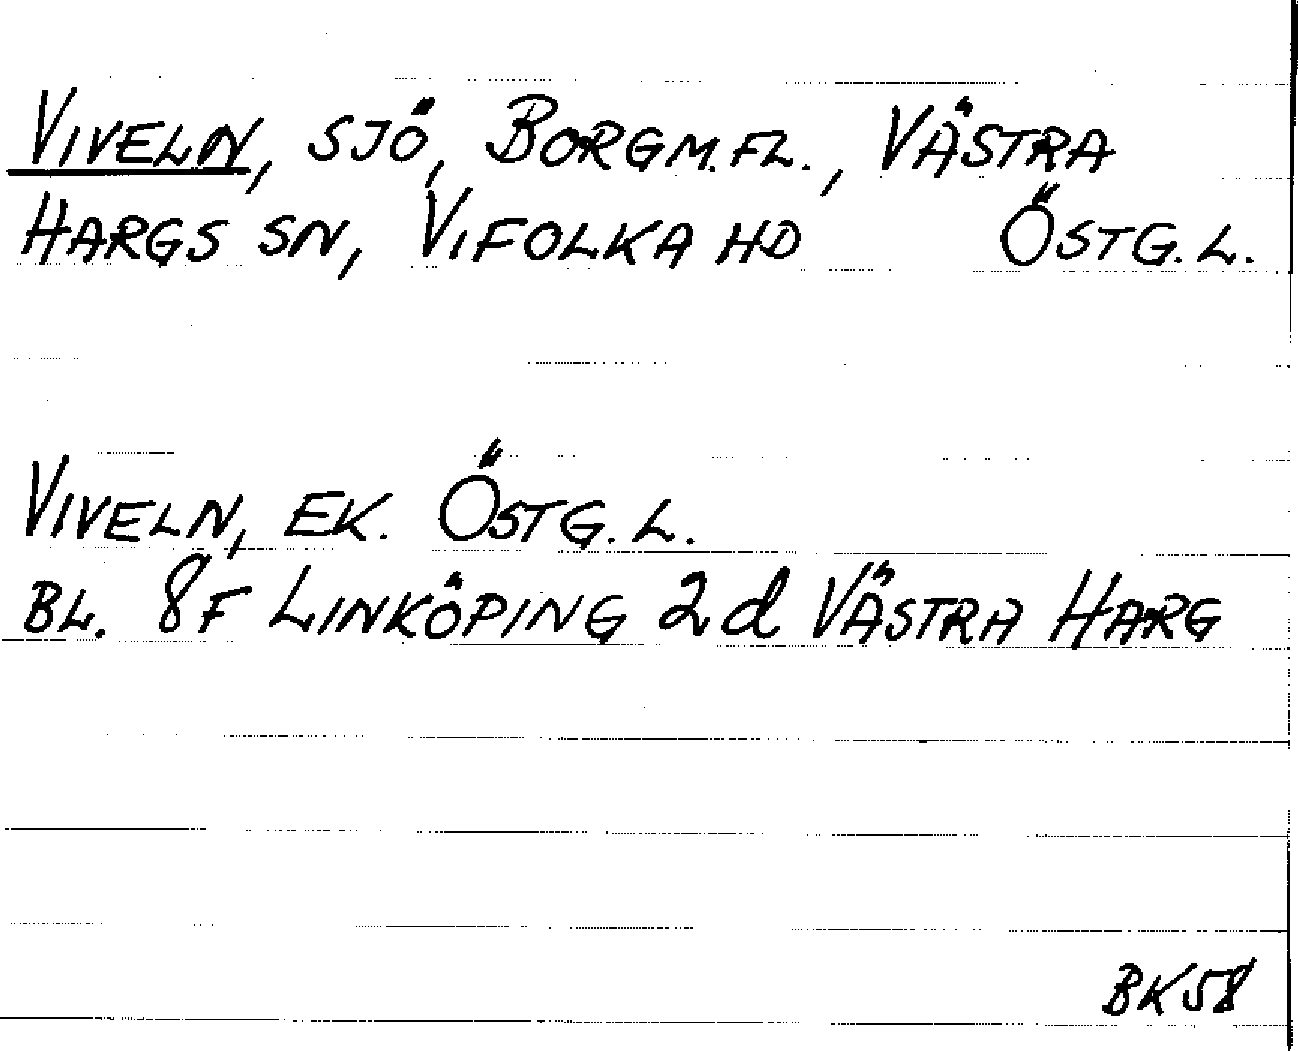 VIVELN, SJÖ, BORGM.FL., VÄSTRA
HARGS SN, VIFOLKA HD ÖSTG.L.
VIVELN, EK. ÖSTG.L.
BL. 8F LINKÖPING 2d VÄSTRA HARG
BK58